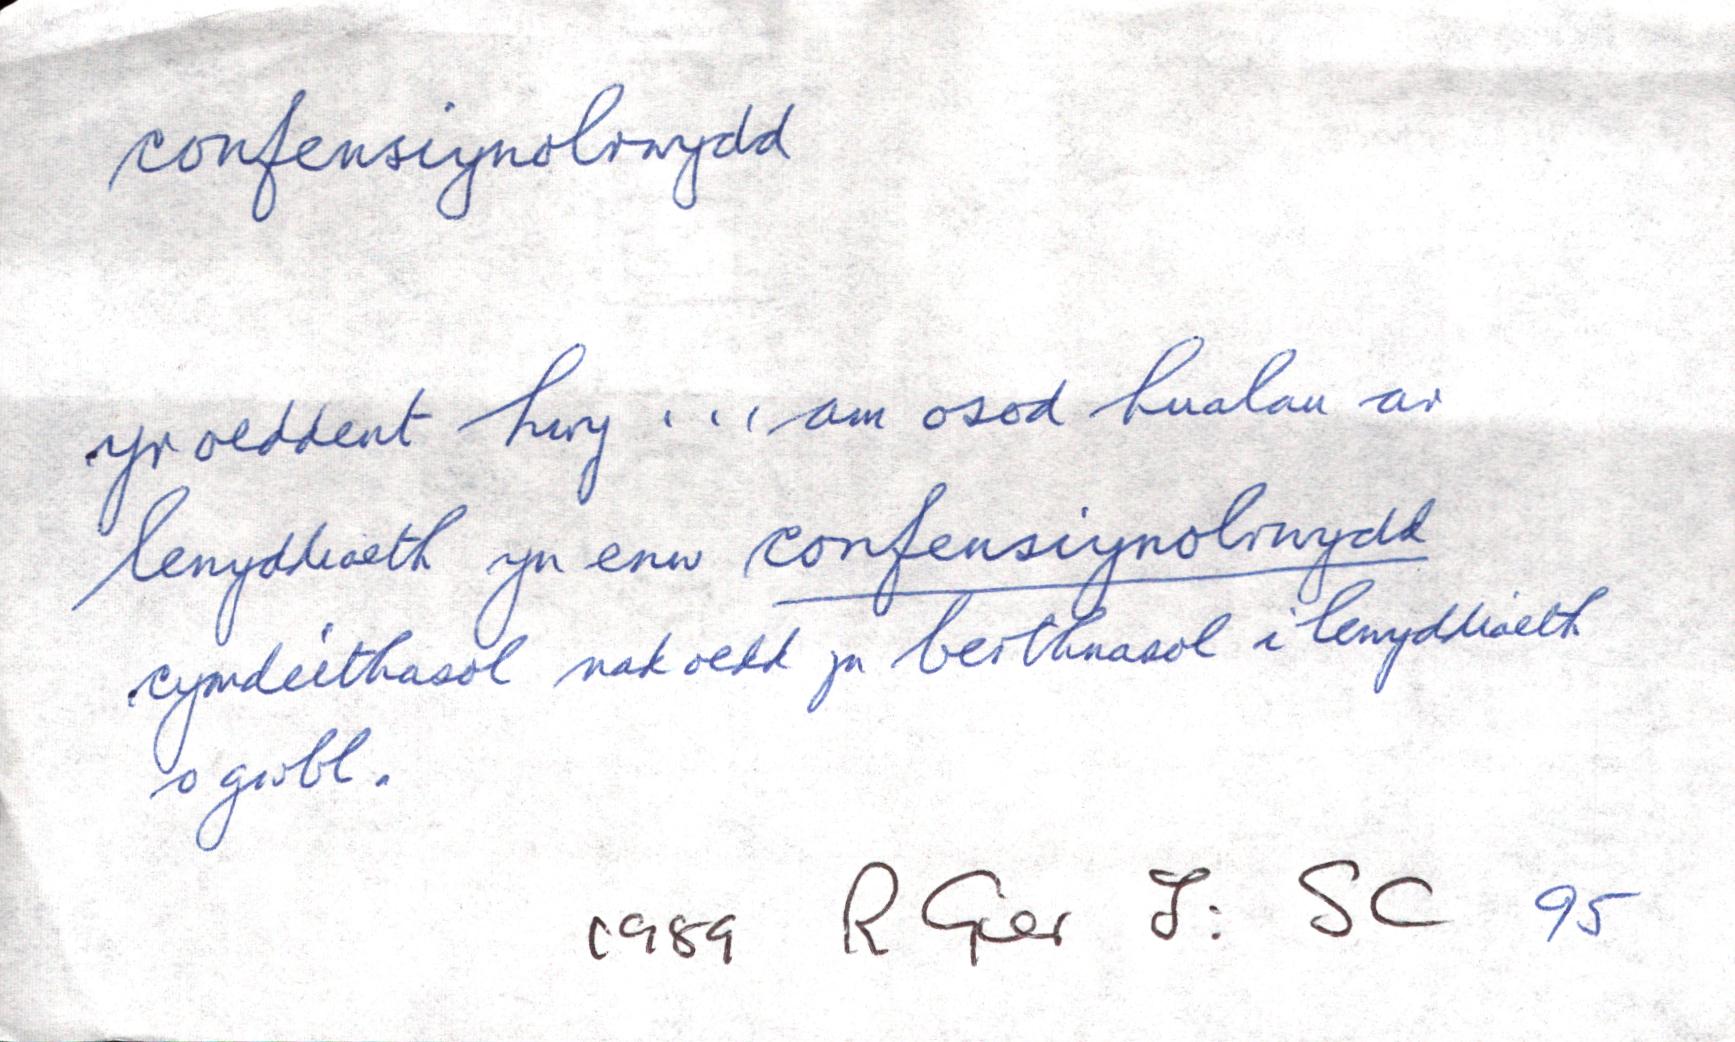 confensiynolrwydd
yr oeddent hwy ... am osod hualau ar
lenyddiaeth yn enw confensiynolrwydd
cymdeithasol nad oedd yn berthnasol i lenyddiaeth
o gwbl.
1989 R Ger J: SC 95